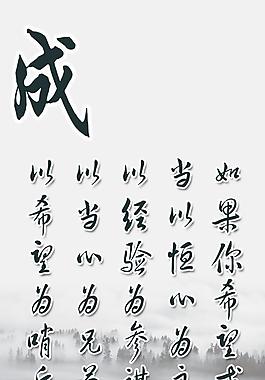 成
如果你希望成
当以恒心为
以经验为参谋
以当心为兄
以希望为哨兵